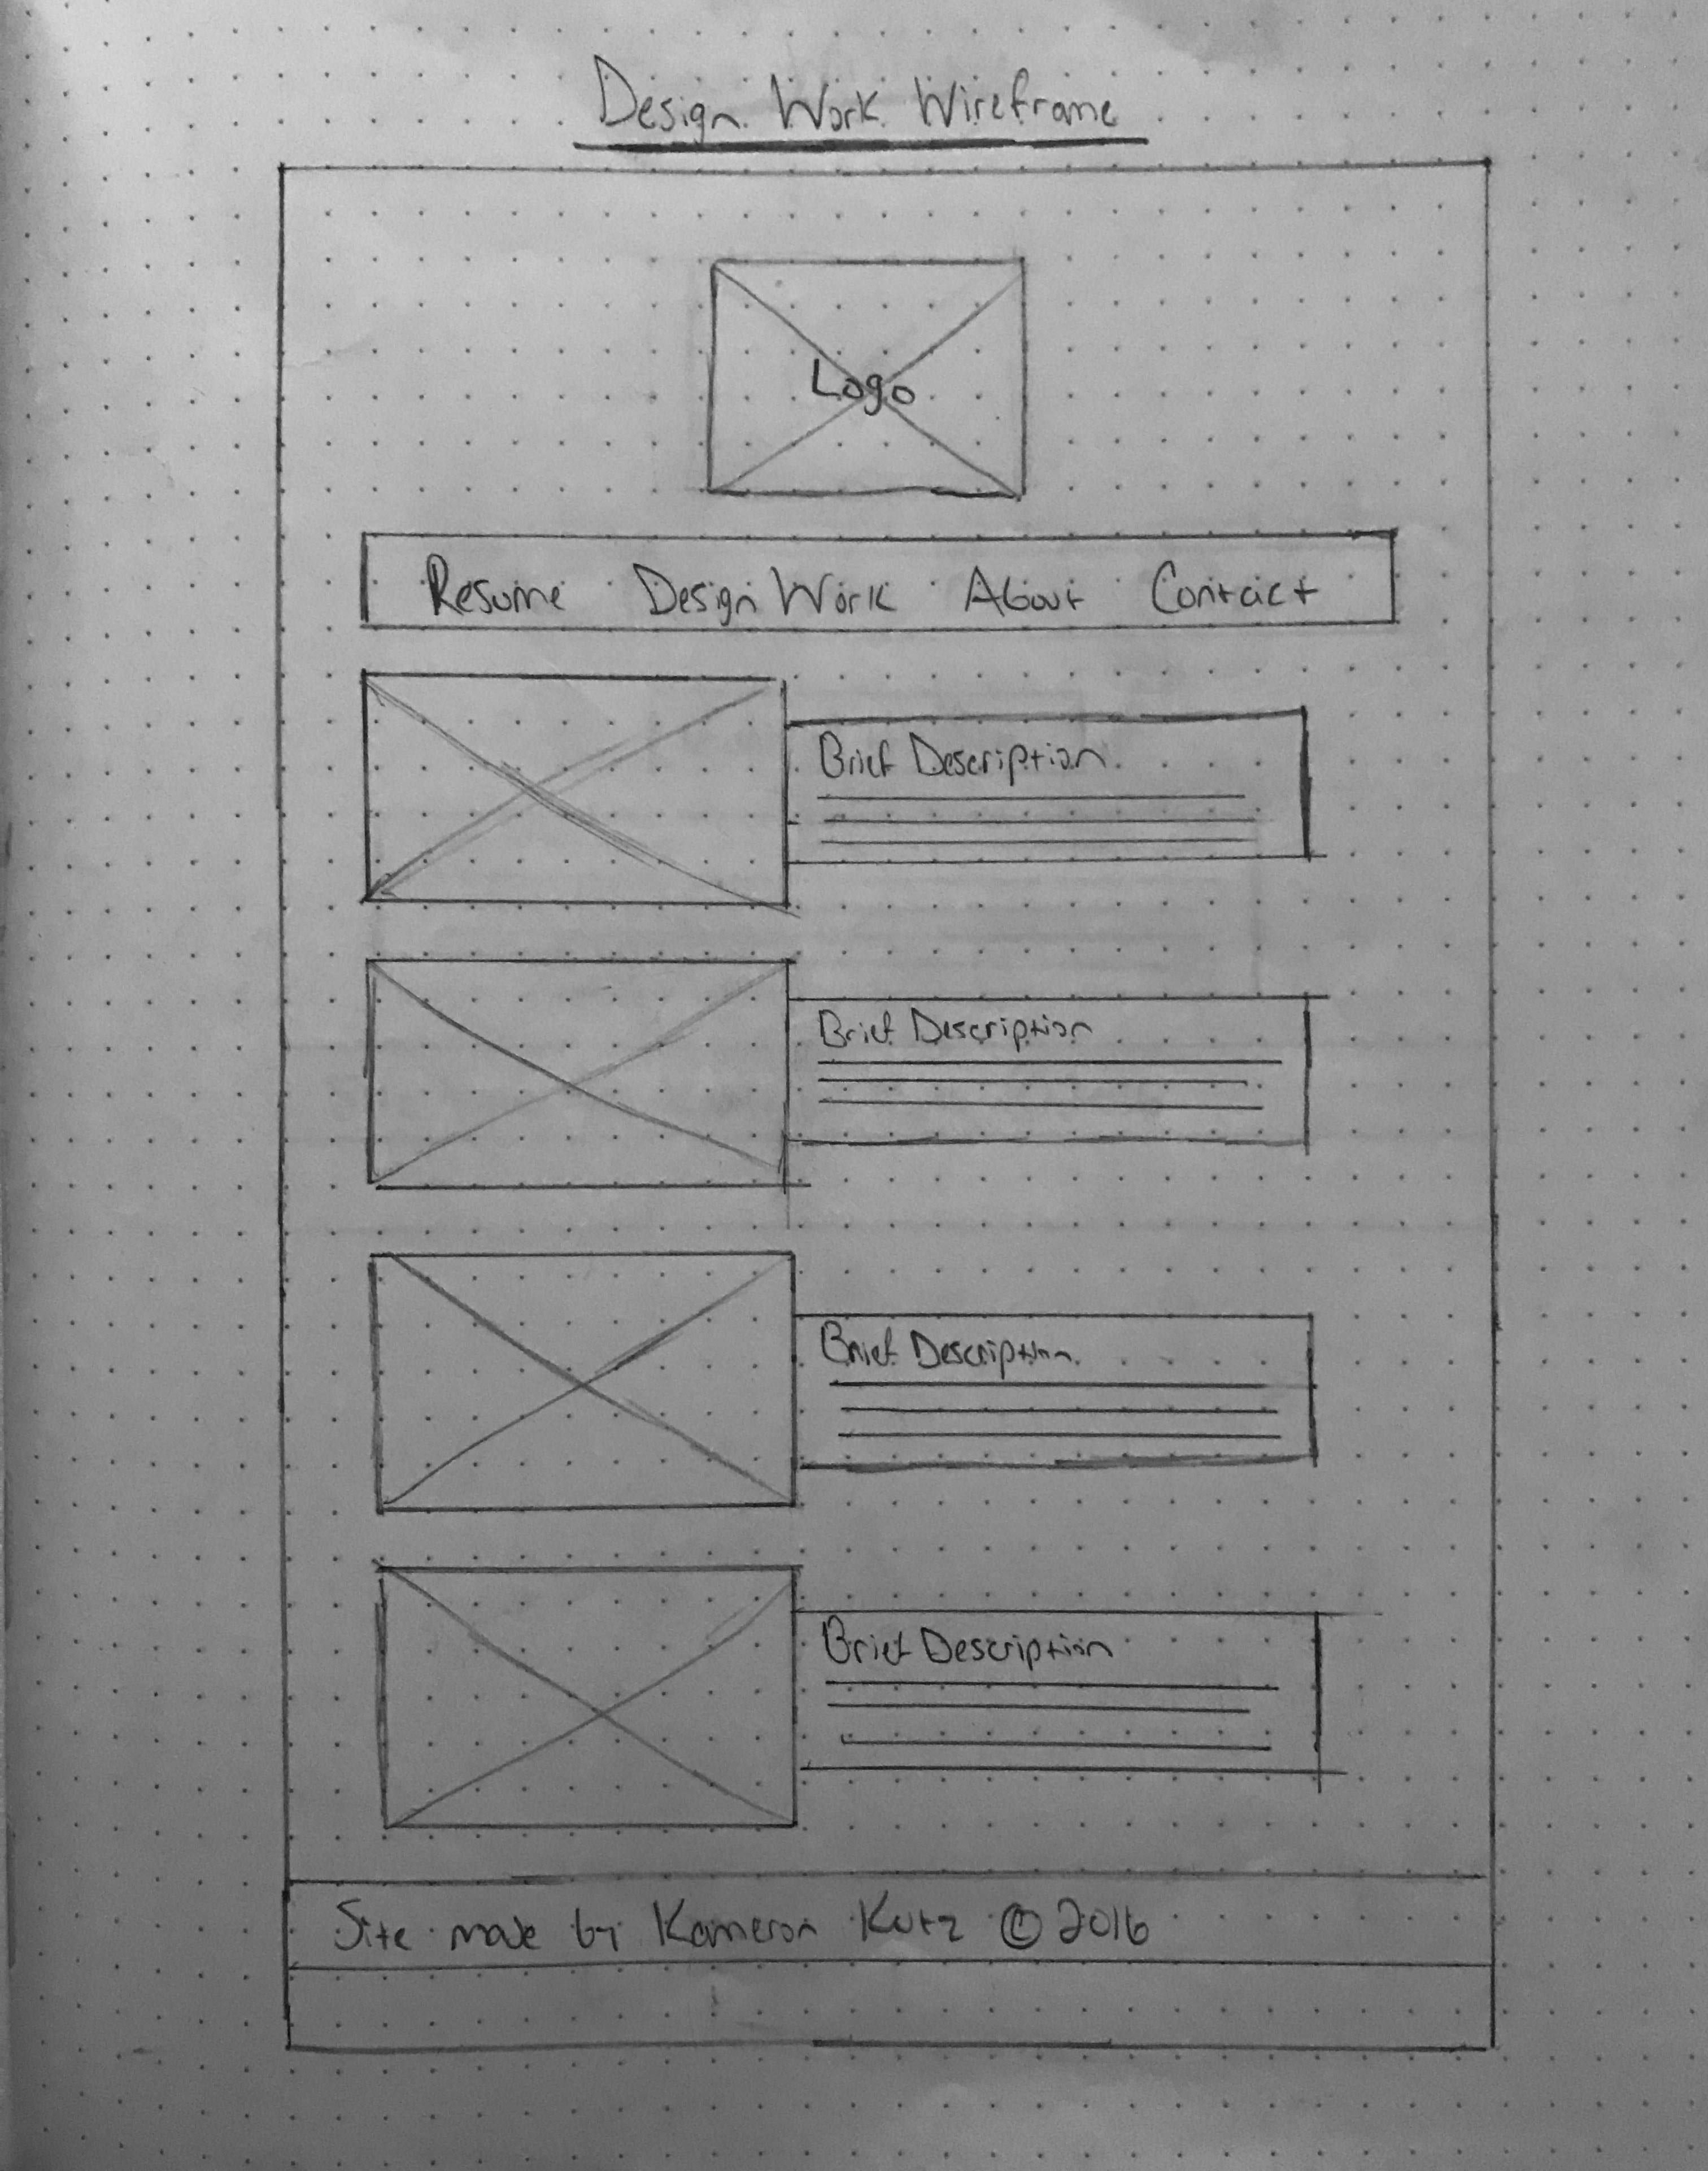 Design Work Wireframe
Logo
Resume Design Work About Contact
Brief Description
Brief Description
Brief Description
Brief Description
Site made by Kameron Kutz © 2016